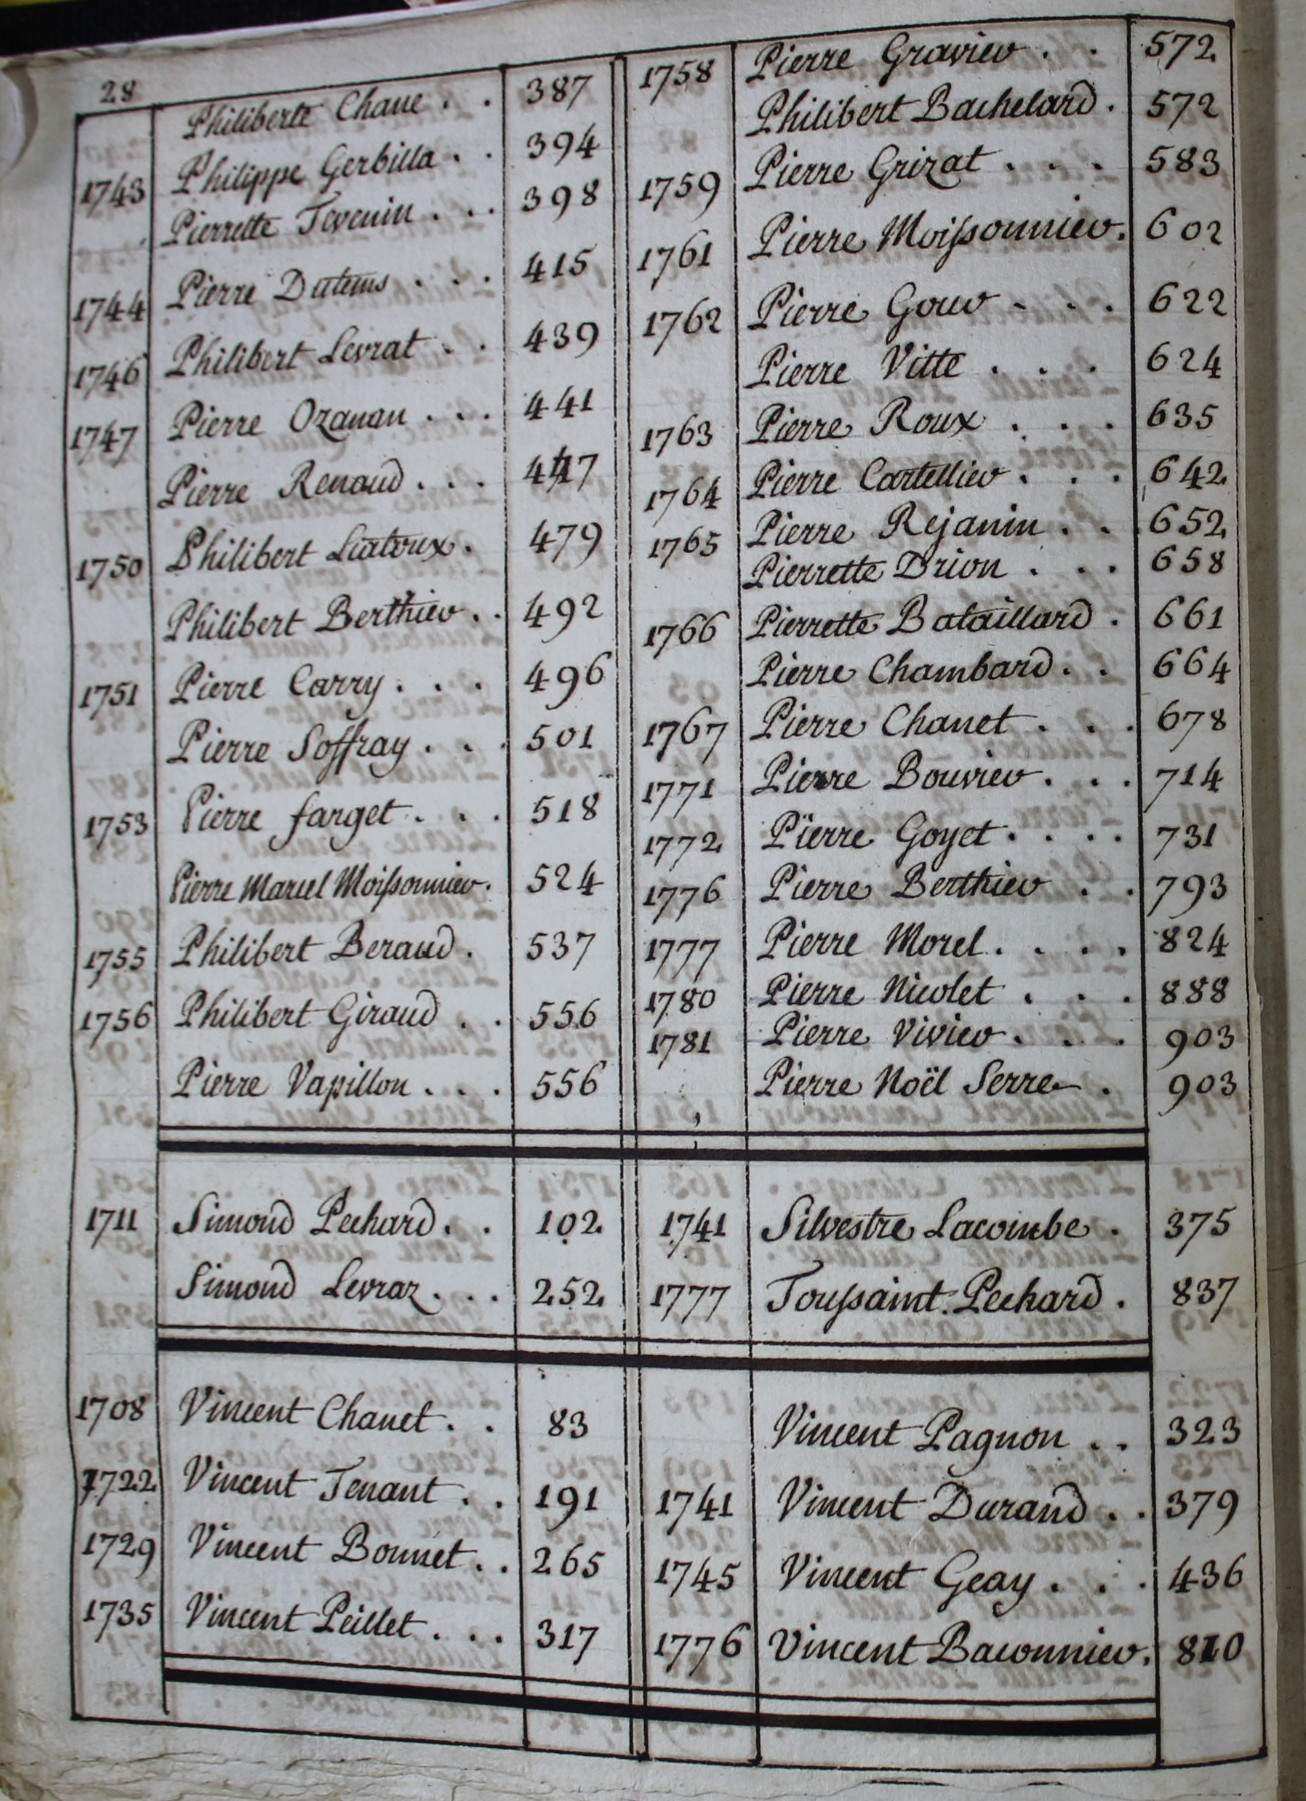 28
Philiberte Chane . . 387
1743 Philippe Gerbilla . . 394
Pierrette Tevenin . . . 398
1744 Pierre Dutems . . . 415
1746 Philibert Levrat . . 439
1747 Pierre Ozanan . . . 441
Pierre Renaud . . . 447
1750 Philibert Liatoux . 479
Philibert Berthier . . 492
1751 Pierre Carry . . . 496
Pierre Soffray . . . 501
1753 Pierre farget . . . 518
Pierre Marcel Moissonnier . 524
1755 Philibert Beraud . 537
1756 Philibert Giraud . . 556
Pierre Vapillon . . . 556
1758 Pierre Gravier . . 572
Philibert Bachelard . 572
1759 Pierre Grizat . . . 583
1761 Pierre Moissonnier . 602
1762 Pierre Gour . . . 622
Pierre Vitte . . . 624
1763 Pierre Roux . . . 635
1764 Pierre Cartellier . . . 642
1765 Pierre Rejanin . . . 652
Pierrette Drion . . . 658
1766 Pierrette Bataillard . 661
Pierre Chambard . . 664
1767 Pierre Chanet . . . 678
1771 Pierre Bouvier . . . 714
1772 Pierre Goyet . . . . 731
1776 Pierre Berthier . . 793
1777 Pierre Morel . . . . 824
1780 Pierre Nicolet . . . 888
1781 Pierre Vivier . . . 903
Pierre Noël Serre . 903
1711 Simond Pechard . . 102
Simond Levraz . . . 252
1741 Silvestre Lacombe . 375
1777 Toussaint Pechard . 837
1708 Vincent Chanet . . 83
1722 Vincent Tenant . . 191
1729 Vincent Bonnet . . 265
1735 Vincent Peillet . . . 317
Vincent Pagnon . . 323
1741 Vincent Durand . . 379
1745 Vincent Geay . . . 436
1776 Vincent Baconnier . 810